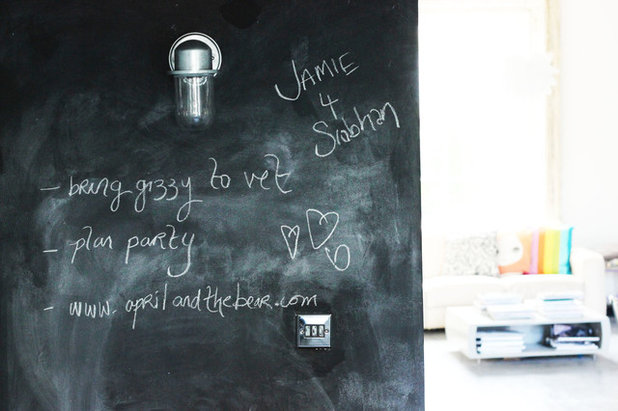 JAMIE
4
Siobhan
- bring gizzy to vet
- plan party
- www.aprilandthebear.com